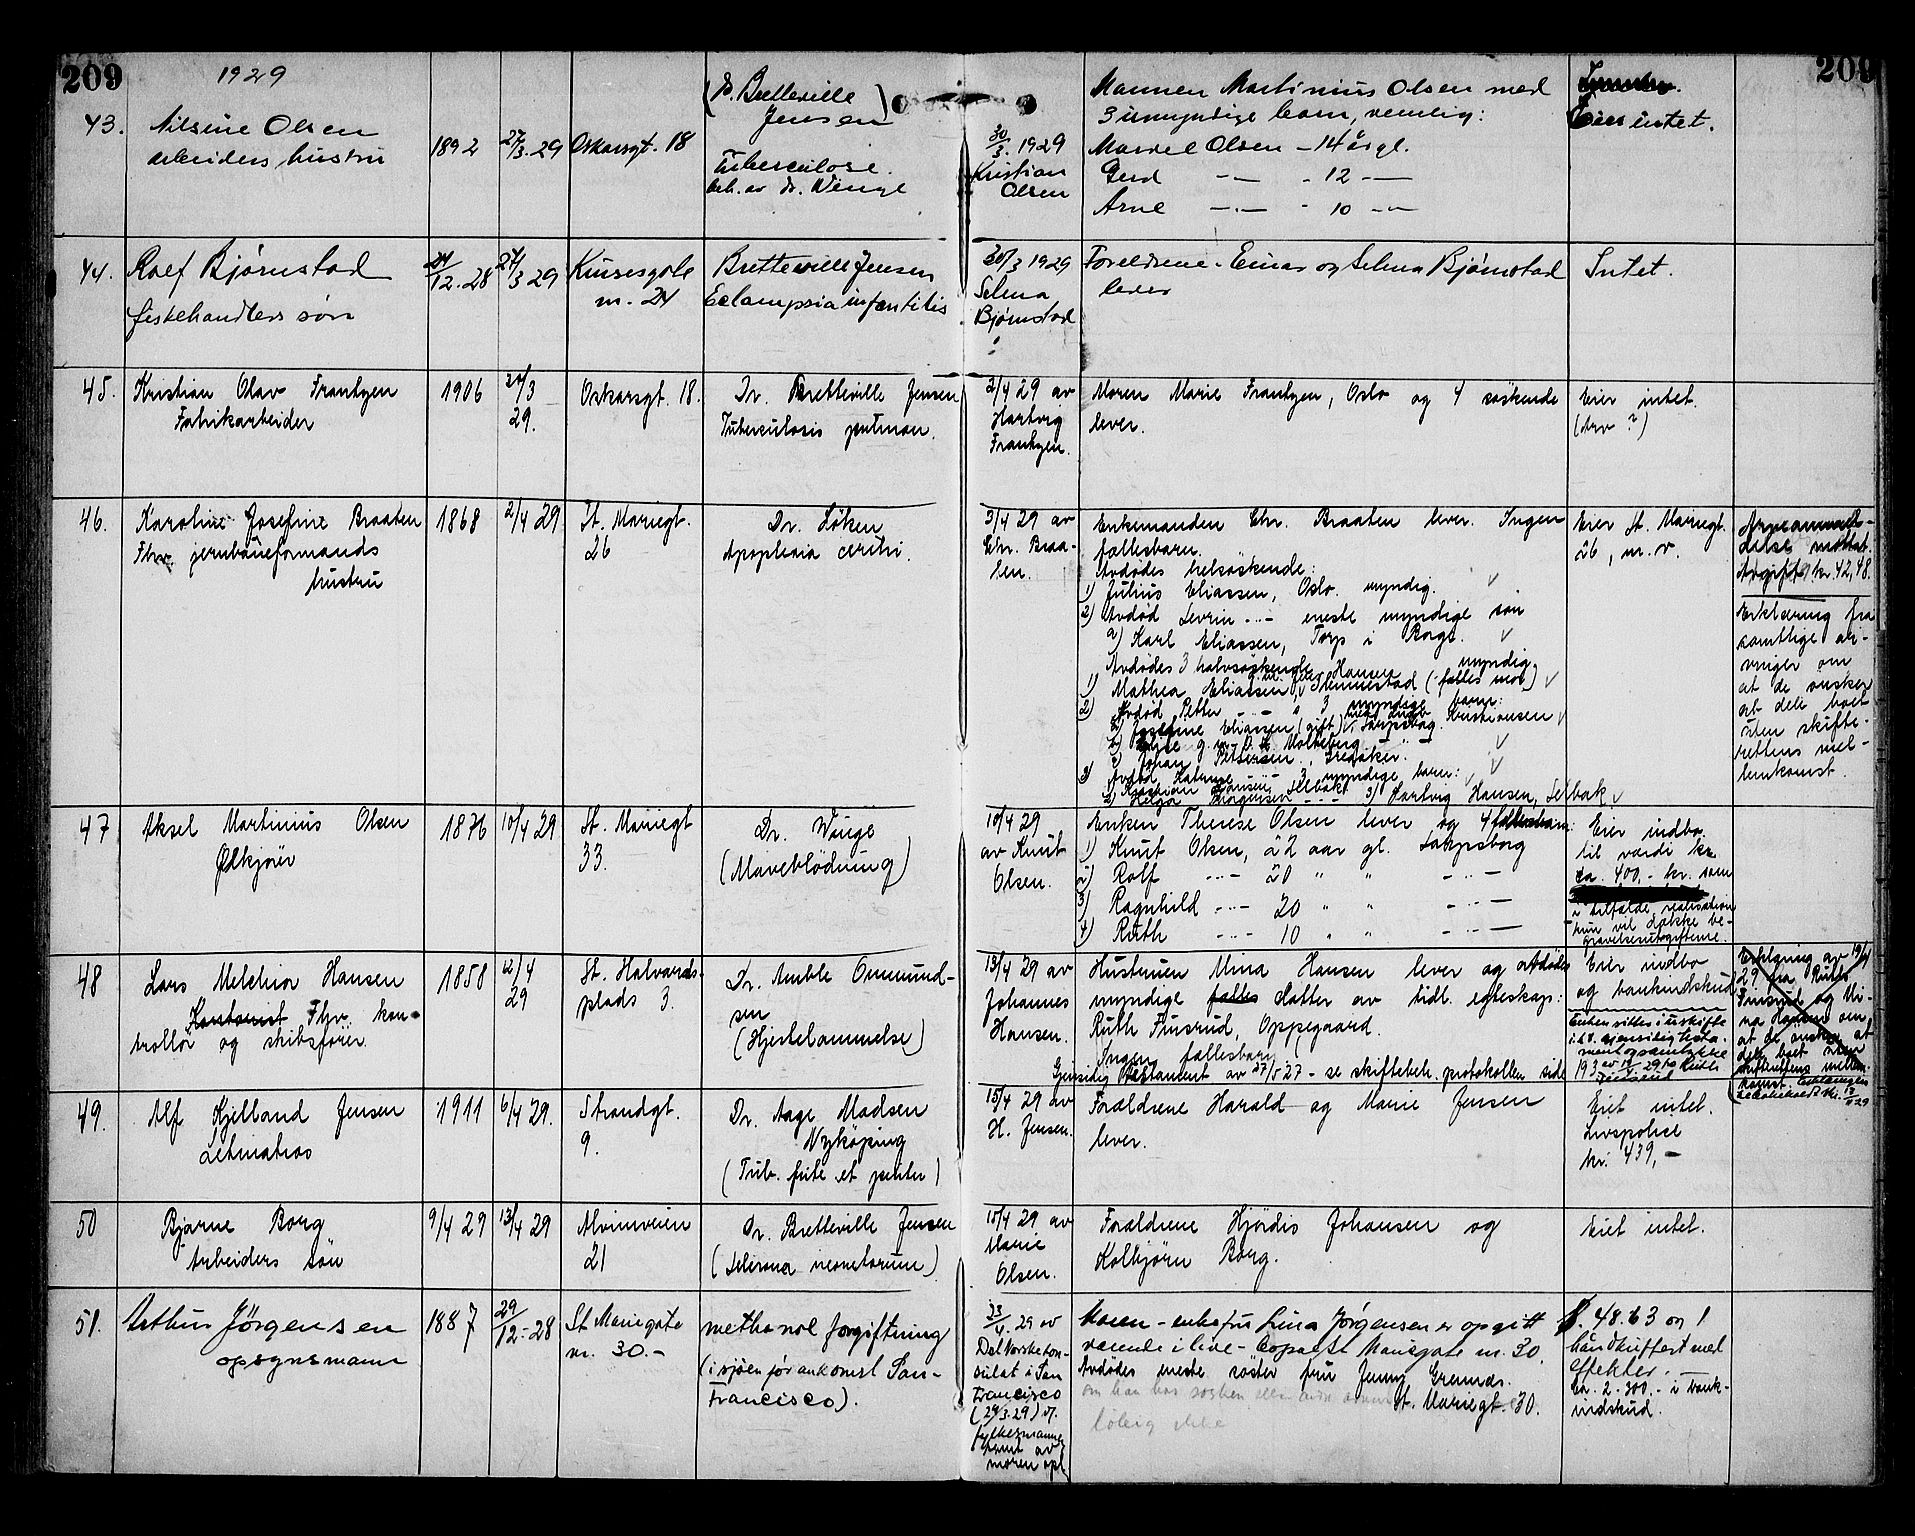 209
1929
209
43.
Nilsine Olsen
arbeiders hustru
1892
27/3.29
Oskarsgt. 18
(D. Bretteville
Jensen)
Tuberculose.
beh. av dr. Winge
30/3. 1929
Kristian
Olsen
Mannen Martinius Olsen med
3 umyndige barn, nemlig:
Olsen – 14 år gl.
Gerd –"– - 12 –"–
Arne –"– - 10 –"–
Eier intet.
44.
Rolf Bjørnstad
fiskehandlers søn
24/12.28
27/3 29
Kirkegate
nr. 24
Bretteville Jensen
Eclampsia infantilis
30/3 1929
Selma
Bjørnstad
Foreldrene – Einar og Selma Bjørnstad
lever
Intet.
45.
Kristian Olav Frantzen
Fabrikarbeider
1906
29.
Oskarsgt. 18.
Dr. Bretteville Jensen
Tuberculosis pulmon.
2/4 29 av
Hartvig
Frantzen.
Moren Marie Frantzen, Oslo og 4 søskende
lever.
Eier intet.
(arv ?)
46.
Karoline Josefine Braaten
Fhv. jernbaneformands
hustru
1868
2/4 29
St. Mariegt.
26
Dr. Løken
Apoplexia cerebri.
3/4 29 av
Chr. Braa-
ten.
Enkemanden Chr. Braaten lever. Ingen
fællesbarn.
Avdødes helsøskende:
1) Julius Eliassen, Oslo. myndig.
2) Avdød Levrin –"– eneste myndige søn
a) Karl Eliassen, Torp i Borge.
Avdødes 3 halvsøskende myndig
1) Mathea Eliassen, Hennestad (fælles mor)
2) Avdød Petter –"– 3 myndige barn:
Eliassen (gift) Kristiansen
Johan Pettersen, Greåker.
3) Avdød 3 myndige barn:
Kristian Hansen, Selbak
2) Helga Thorgersen –"– 3) Hartvig Hansen, Selbak.
Eier St. Mariegt.
26, m. v.
Arveanmel-
delse mottat.
Avgift kr. 42,48.
Erklæring fra
samtlige ar-
vinger om
at de ønsker
at dele boet
uten skifte-
rettens mel-
lemkomst.
47
Aksel Martinius Olsen
Ølkjører
1876
10/4 29
St. Mariegt
33.
Dr. Winge
(Maveblødning)
10/4 29
av Knut
Olsen.
Enken Therese Olsen lever og 4 fællesbarn:
1) Knut Olsen, 22 aar gl. Sarpsborg
2) Rolf –"– 20 " " –"–
3) Ragnhild –"– 20 " " –"–
4) Ruth –"– 10 " " –"–
Eier indbo
til værdi kr
ca. 400,- kr. som
i tilfælde realisation
kun vil dække be-
gravelsesutgiftene.
48
Lars Melchior Hansen
Kontorist Fhv. kon-
trollør og skibsfører.
1858
12/4
29
St. Halvards-
plads 3.
Dr. Amble Ommund-
sen
(Hjertelammelse)
13/4 29 av
Johannes
Hansen.
Hustruen Mina Hansen lever og avdødes
myndige fælles datter av tidl. egteskap:
Ruth Finsrud, Oppegaard.
Ingen fællesbarn
Gjensidig testament av 27/5 27 – se skiftebeh. protokollen side 193
Eier indbo
og bankindskud
Enken sitter i uskifte
i h. t. gjensidig testa-
ment og samtykke
Ruth
Finsrud
Erklæring av 19/4
29 fra Ruth
Finsrud og Mi-
na Hansen om
at de ønsker at
dele boet uten
skifterettens mellem-
komst.
49.
Alf Kjelland Jensen
Letmatros
1911
6/4 29.
Strandgt.
9.
Dr. Aage Madsen
Nykøping
15/4 29 av
H. Jensen.
Forældrene Harald og Marie Jensen
lever.
Eiet intet.
Livspolice
kr. 439,–
50
Bjarne Borg
Arbeiders søn
9/4 29
13/4 29
Alvimveien
21
Dr. Bretteville Jensen
15/4 29 av
Marie
Olsen.
Forældrene Hjørdis Johansen og
Kolbjørn Borg.
Eiet intet.
51.
Arthur Jørgensen
opsynsmann
1887
29/12-28
St Mariegate
nr. 30.–
methanol forgiftning
(i sjøen før ankomst San-
Francisco).
.29 av
Det Norske Kon-
sulat i San
Francisco
fylkesmannen
samt av
moren opl.
Moren – enkefru Lina Jørgensen er opgitt
værende i live – St Mariegate nr. 30.
Avdødes eneste søster fru Jenny
St. Mariegt. 30.
om han har søsken eller
48.63 og 1
håndkuffert med
effekter.
Ca. 2-300,- i bank-
indskud.